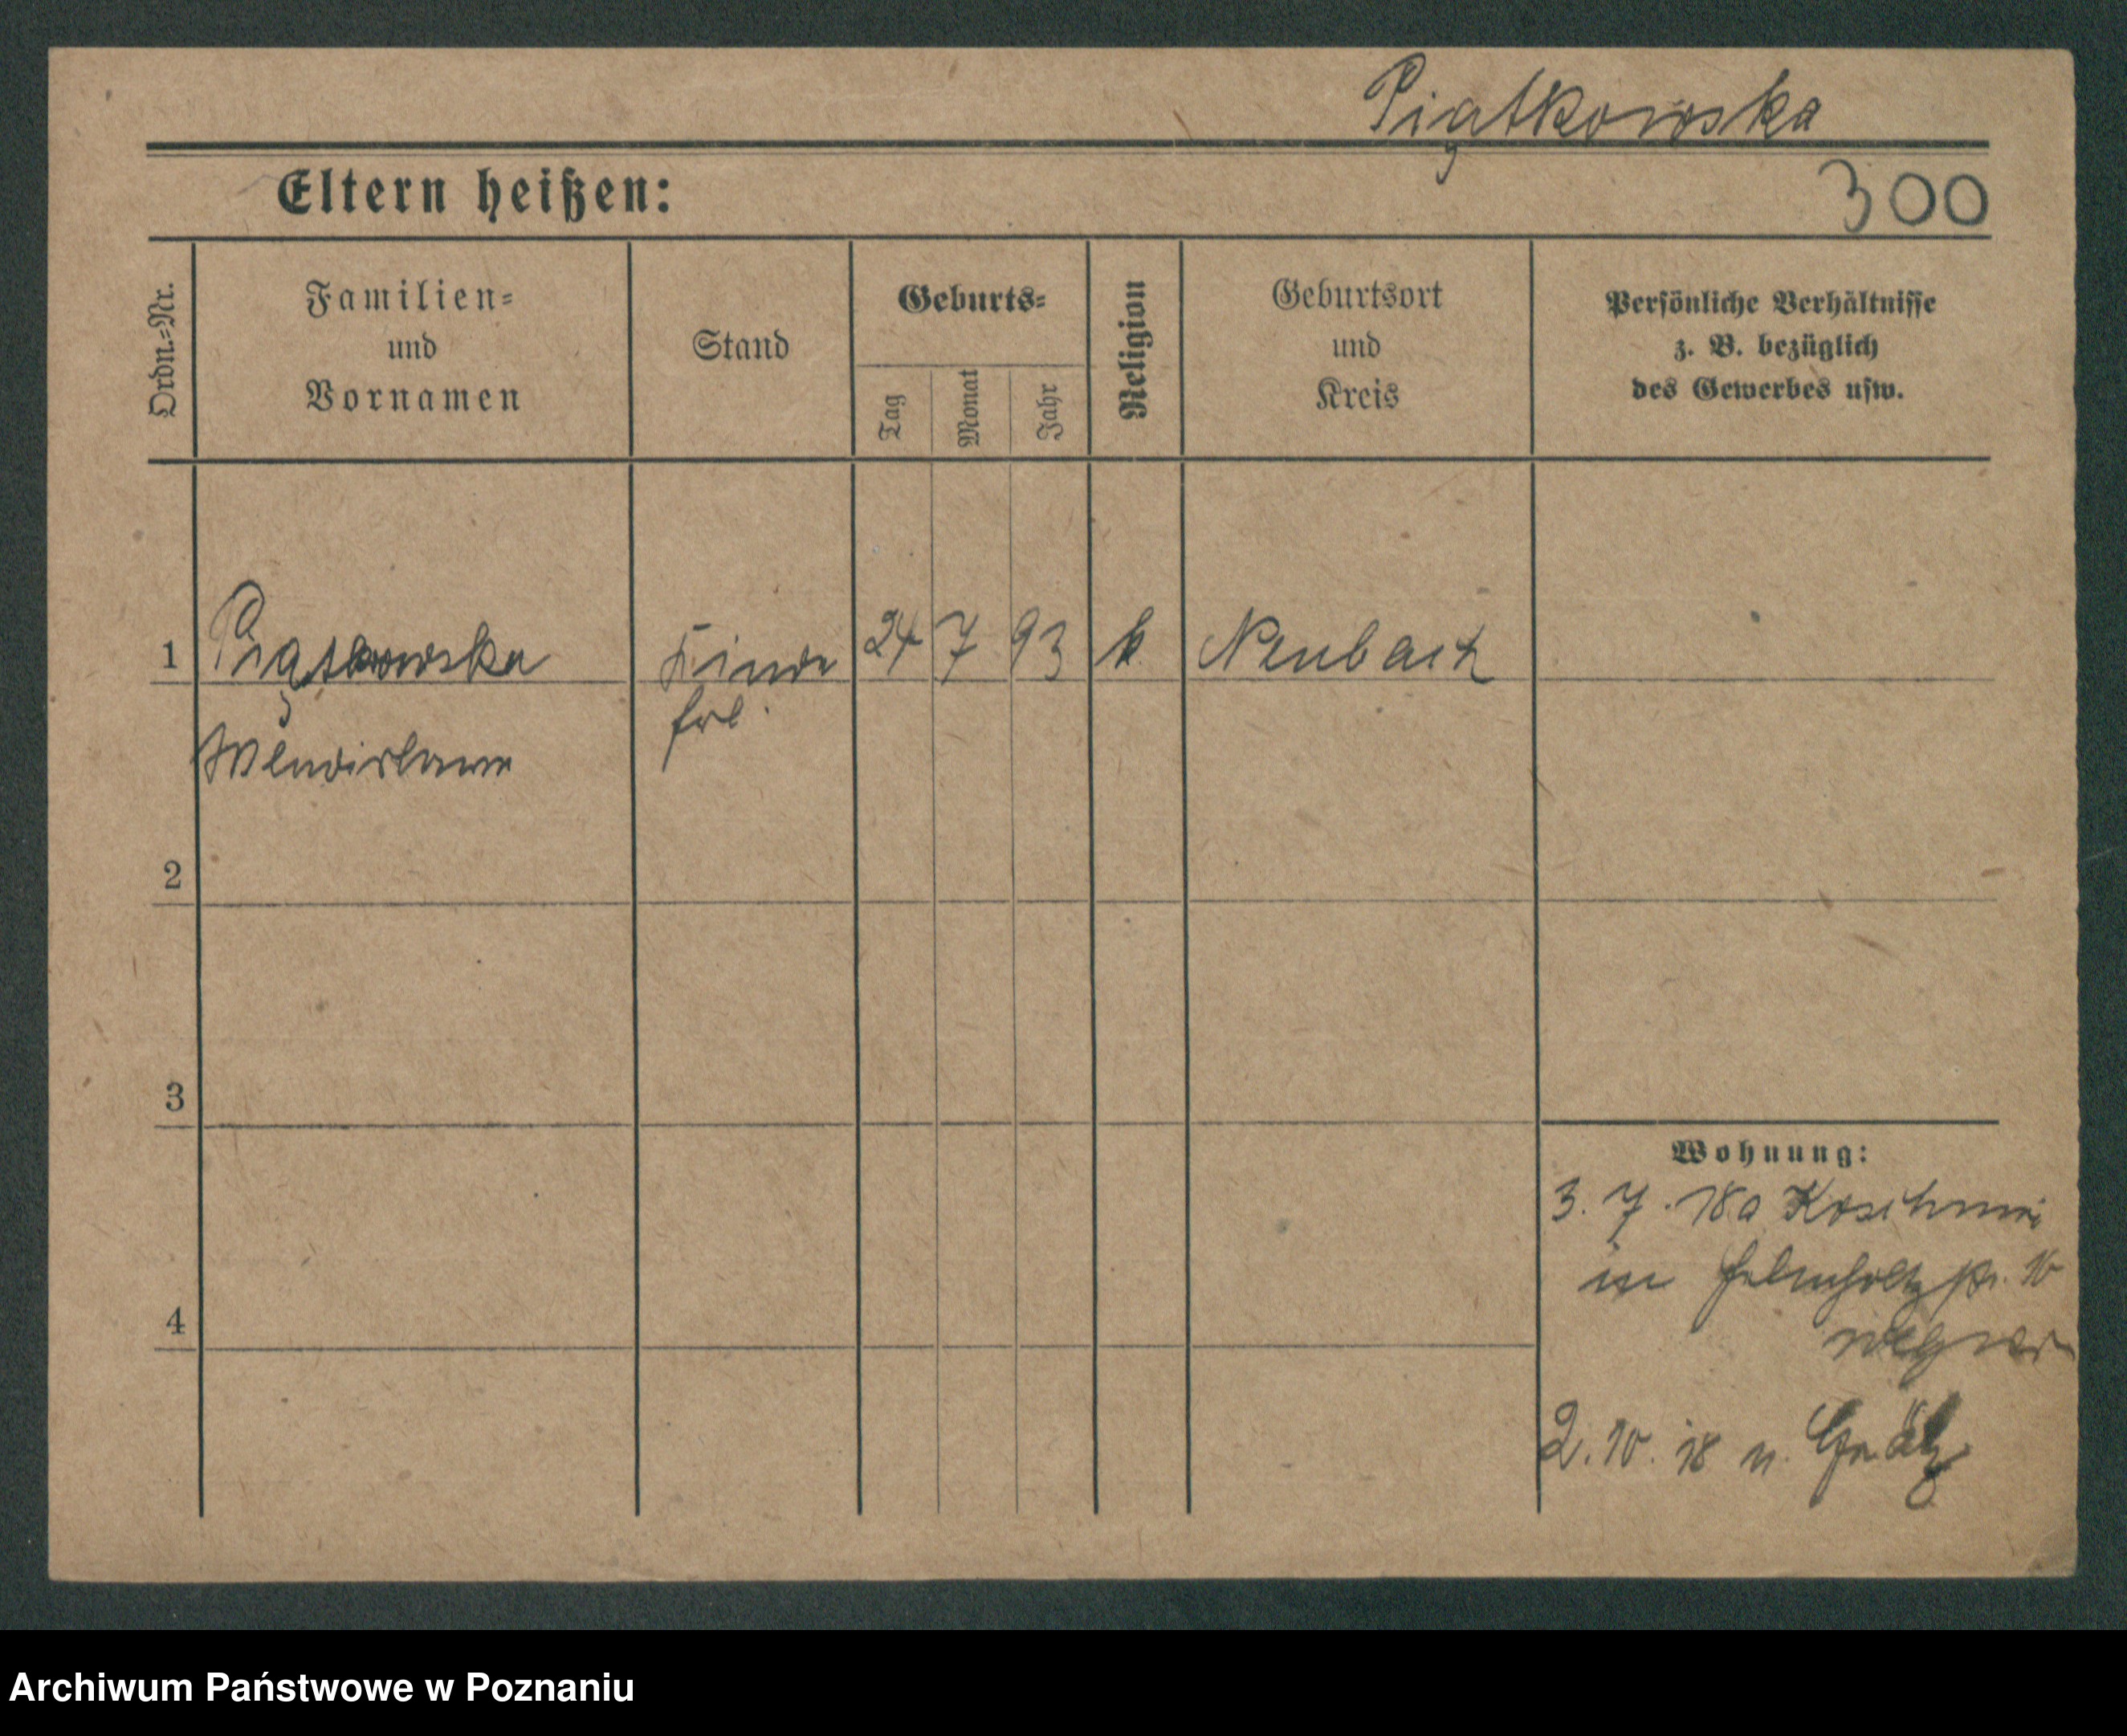 Piątkowska
Eltern heißen:
300
Ordn.-Nr.
Familien-
und
Vornamen
Stand
Geburts-
Tag
Monat
Jahr
Religion
Geburtsort
und
Kreis
Persönliche Verhältnisse
z. B. bezüglich
des Gewerbes usw.
1
Piątkowska
Kinder
frl.
24 7 93 k. Neubach
Wladislawa
2
3
4
Wohnung:
3. 7. 18 a Koschmin
in Helmholtzstr. 10
2. 10. 18 n. Grätz
Archiwum Państwowe w Poznaniu